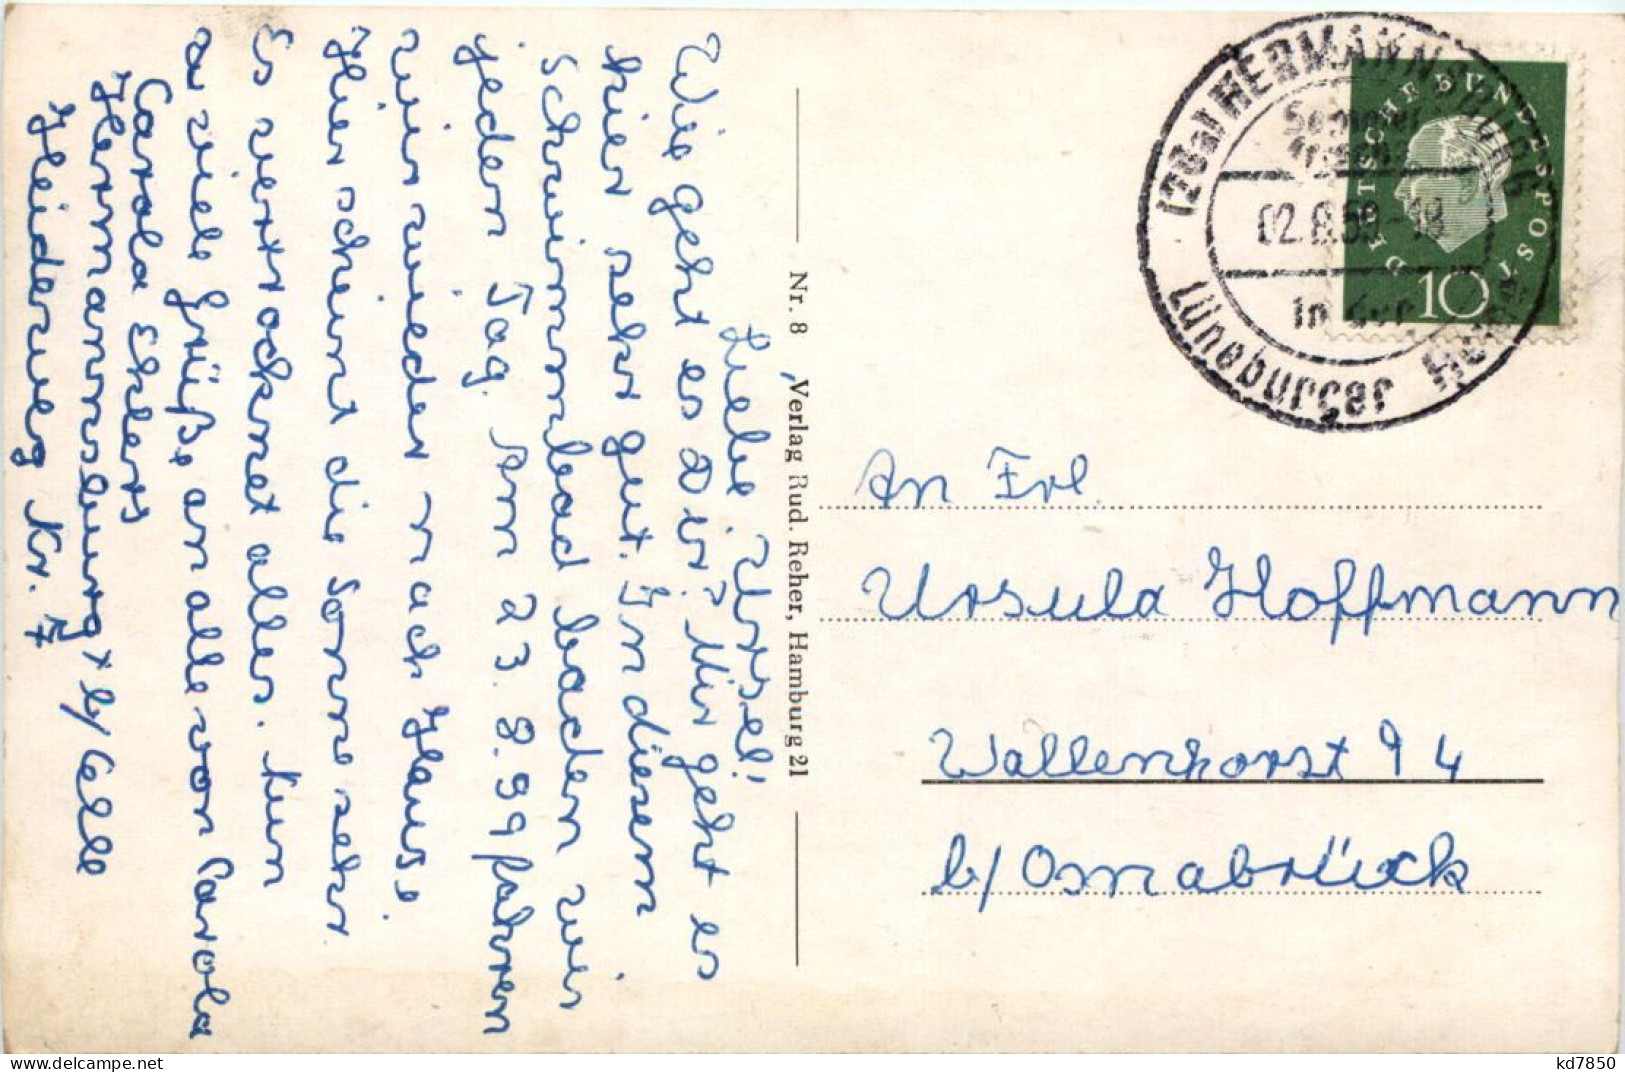 Liebe Ursel!
Wie geht es Dir? Mir geht es
hier sehr gut. In diesem
Schwimmbad baden wir
jeden Tag. Am 23. 8. 59 fahren
wir wieder nach Hause.
Hier scheint die Sonne sehr.
Es vertrocknet alles. Nun
viele Grüße an alle von Carola
Carola Ehlers
Hermannsburg b/ Celle
Heideweg Nr. 7
Nr. 8 Verlag Rud. Reher, Hamburg 21
(20a) HERMANNSBURG
Sommer
02.8.59-18
in der
Lüneburger Heide
DEUTSCHE BUNDESPOST
10
An Frl.
Ursula Hoffmann
Wallenhorst 94
b/ Osnabrück
kd7850